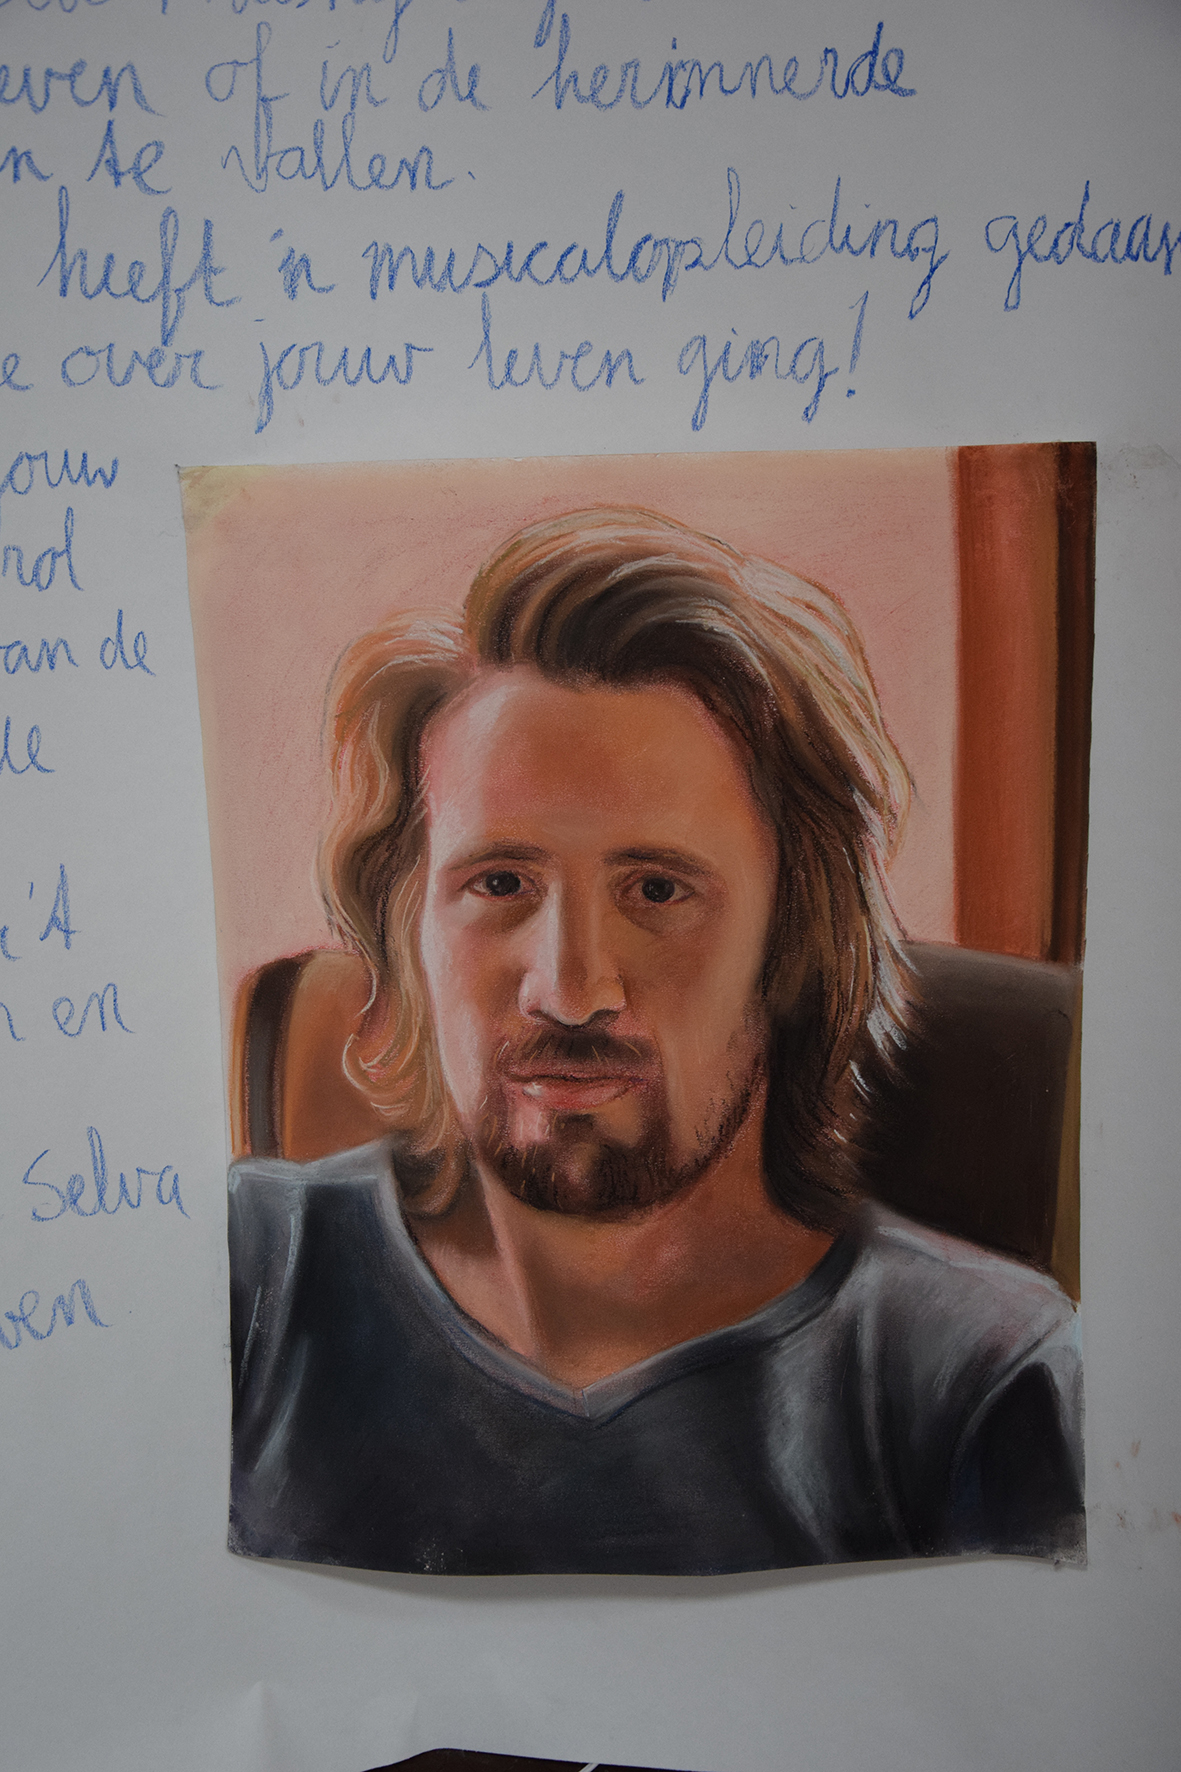 even of in de herinnerde
n te vallen.
heeft 'n musicalopleiding gedaan
e over jouw leven ging!
ouw
rol
an de
de
't
en
Selva
ven